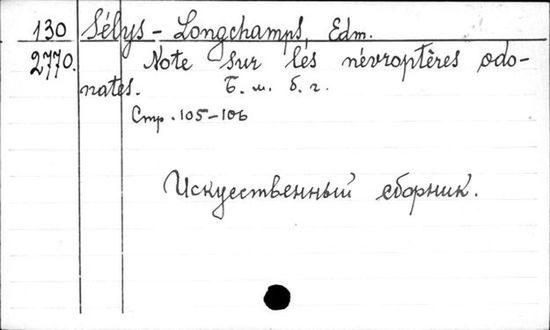 130 Sélys - Longchamps, Edm.
2770. Note sur les névroptères odo-
nates. Б. м. б. г.
Стр. 105-106
Искусственный сборник.